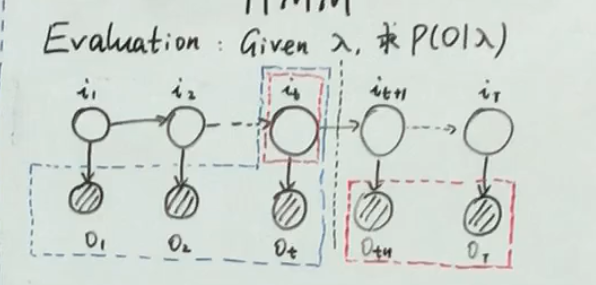 HMM
Evaluation : Given λ, 求 P(O|λ)
i₁ i₂ iₜ iₜ₊₁ i_T
O₁ O₂ Oₜ Oₜ₊₁ O_T